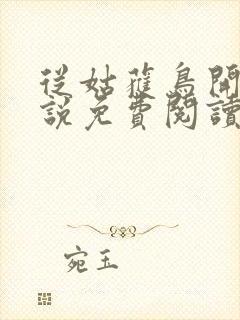 從姑蒦鳥開
說免費閱讀
宛玉